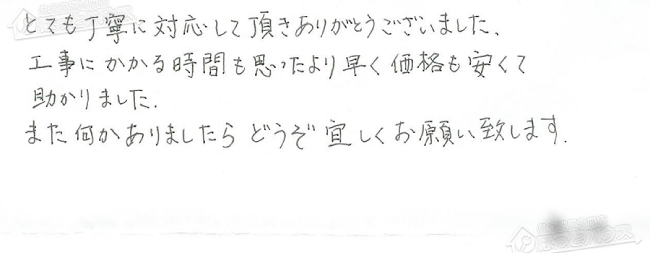 とても丁寧に対応して頂きありがとうございました、
工事にかかる時間も思ったより早く価格も安くて
助かりました.
また何かありましたらどうぞ宜しくお願い致します.